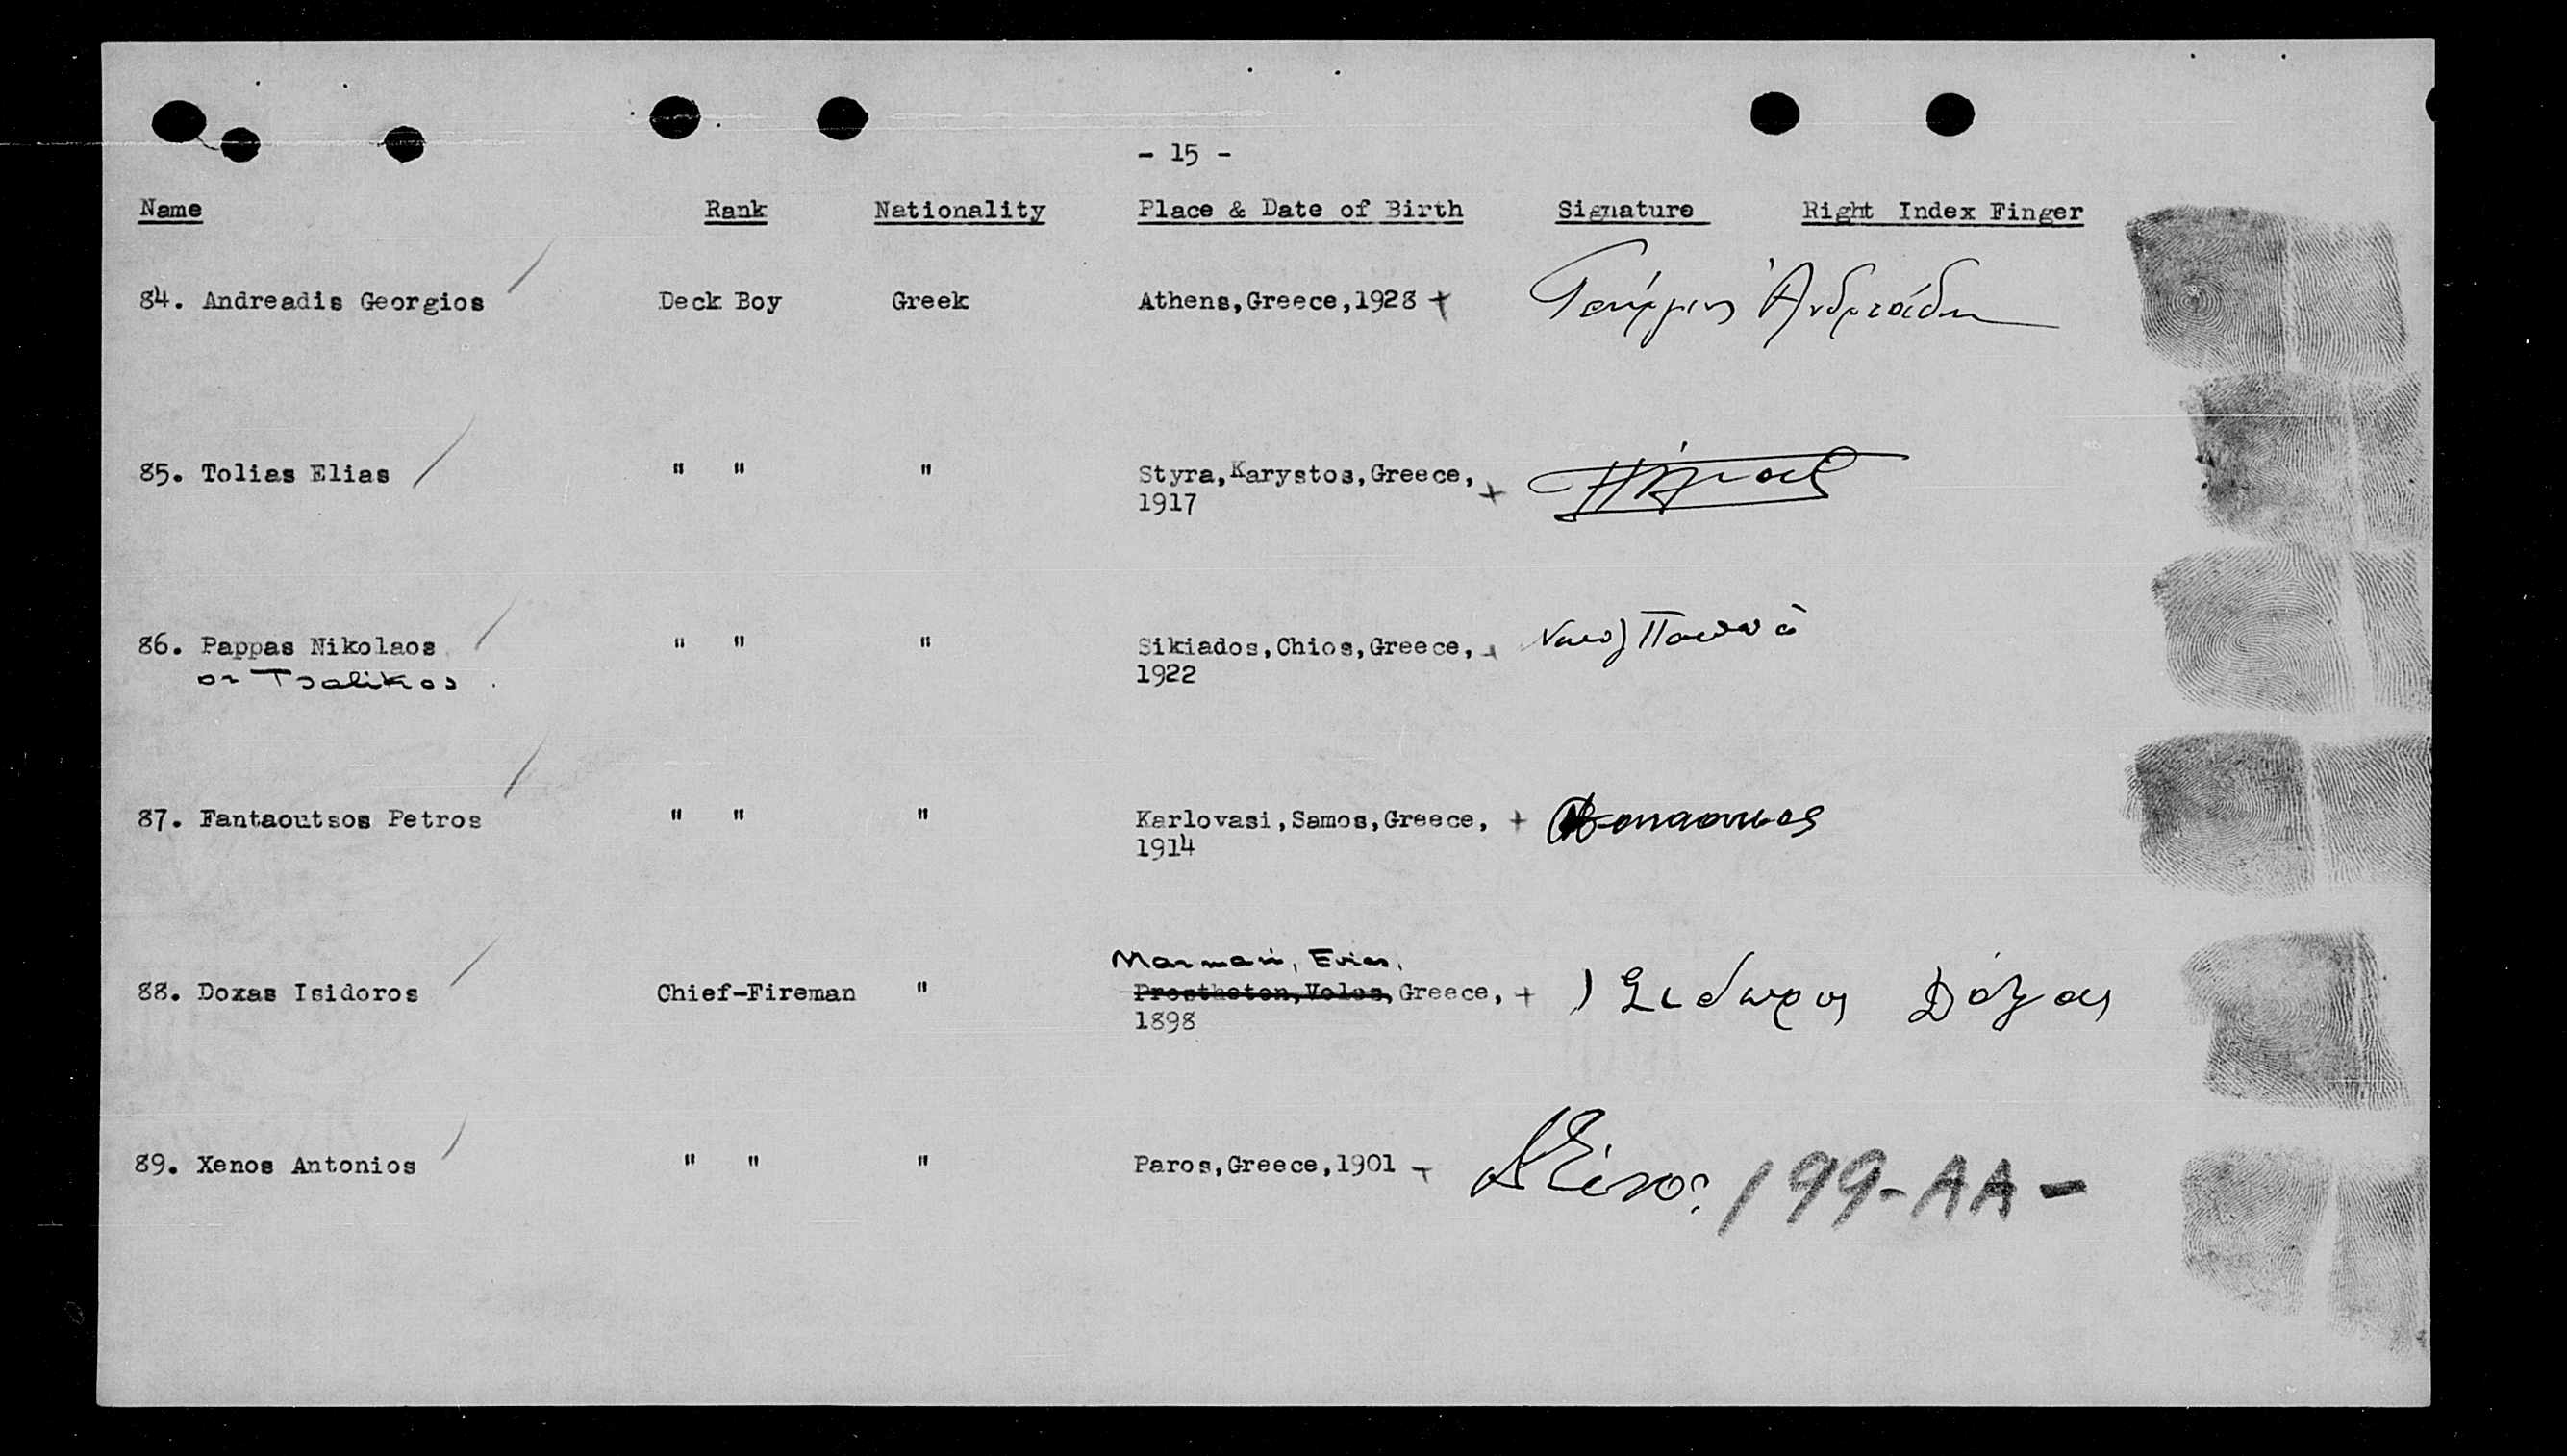 - 15 -
Name Rank Nationality Place & Date of Birth Signature Right Index Finger
84. Andreadis Georgios Deck Boy Greek Athens,Greece,1928 + Γεώργιος Ἀνδρεάδης
85. Tolias Elias " " " Styra,Karystos,Greece, +
1917
86. Pappas Nikolaos " " " Sikiados,Chios,Greece, + Νικος Παππὰ
or Tsalikos 1922
87. Fantaoutsos Petros " " " Karlovasi,Samos,Greece, +
1914
Marmari, Evias,
88. Doxas Isidoros Chief-Fireman " Prostheton,Volos, Greece, + Ισιδωρος Δόξας
1898
89. Xenos Antonios " " " Paros,Greece,1901 + Α Ξένος 199-AA-